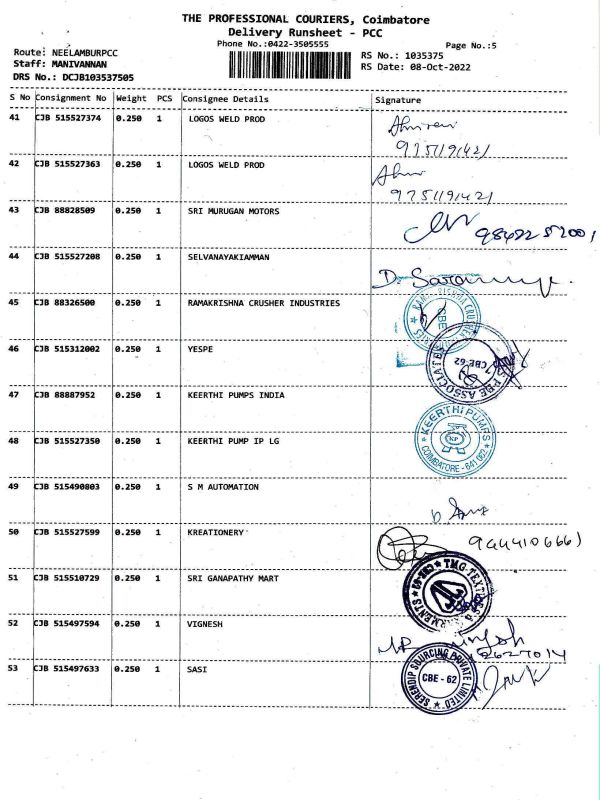 THE PROFESSIONAL COURIERS, Coimbatore
Delivery Runsheet - PCC
Phone No.:0422-3505555
Page No.:5
Route: NEELAMBURPCC
Staff: MANIVANNAN
DRS No.: DCJB103537505
RS No.: 1035375
RS Date: 08-Oct-2022
S No Consignment No Weight PCS Consignee Details Signature
41 CJB 515527374 0.250 1 LOGOS WELD PROD
9751191421
42 CJB 515527363 0.250 1 LOGOS WELD PROD
9751191421
43 CJB 88828509 0.250 1 SRI MURUGAN MOTORS
44 CJB 515527208 0.250 1 SELVANAYAKIAMMAN
45 CJB 88326500 0.250 1 RAMAKRISHNA CRUSHER INDUSTRIES
CBE
46 CJB 515312002 0.250 1 YESPE
CBE-62
47 CJB 88887952 0.250 1 KEERTHI PUMPS INDIA
KEERTHI PUMPS
KP
COIMBATORE - 641 062
48 CJB 515527350 0.250 1 KEERTHI PUMP IP LG
49 CJB 515490803 0.250 1 S M AUTOMATION
50 CJB 515527599 0.250 1 KREATIONERY
51 CJB 515510729 0.250 1 SRI GANAPATHY MART
52 CJB 515497594 0.250 1 VIGNESH
53 CJB 515497633 0.250 1 SASI
SERENDIP SOURCING PRIVATE LIMITED
CBE - 62